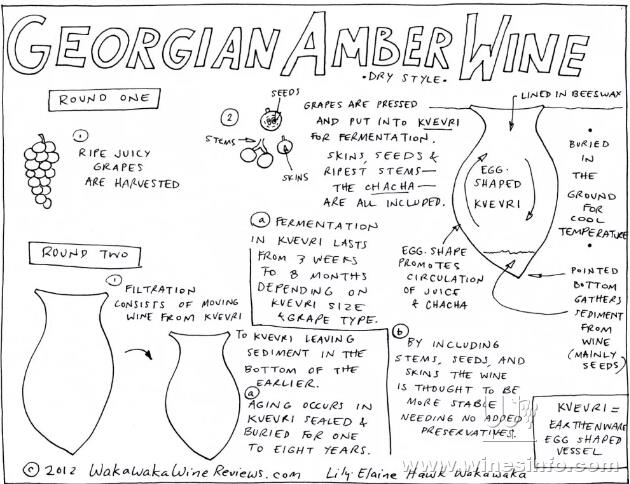 GEORGIAN AMBER WINE
• DRY STYLE •
ROUND ONE
1
RIPE JUICY
GRAPES
ARE HARVESTED
2
SEEDS
STEMS
SKINS
GRAPES ARE PRESSED
AND PUT INTO KVEVRI
FOR FERMENTATION.
SKINS, SEEDS &
RIPEST STEMS—
THE CHACHA—
ARE ALL INCLUDED.
LINED IN BEESWAX
EGG-
SHAPED
KVEVRI
• BURIED
IN
THE
GROUND
FOR
COOL
TEMPERATURE •
a FERMENTATION
IN KVEVRI LASTS
FROM 3 WEEKS
TO 8 MONTHS
DEPENDING ON
KVEVRI SIZE
& GRAPE TYPE.
EGG-SHAPE
PROMOTES
CIRCULATION
OF JUICE
& CHACHA
POINTED
BOTTOM
GATHERS
SEDIMENT
FROM
WINE
(MAINLY
SEEDS)
b
BY INCLUDING
STEMS, SEEDS, AND
SKINS THE WINE
IS THOUGHT TO BE
MORE STABLE
NEEDING NO ADDED
PRESERVATIVES.
ROUND TWO
1
FILTRATION
CONSISTS OF MOVING
WINE FROM KVEVRI
TO KVEVRI LEAVING
SEDIMENT IN THE
BOTTOM OF THE
EARLIER.
a
AGING OCCURS IN
KVEVRI SEALED &
BURIED FOR ONE
TO EIGHT YEARS.
KVEVRI =
EARTHENWARE
EGG SHAPED
VESSEL
© 2012 WakaWakaWineReviews.com Lily-Elaine Hawk Wakawaka
www.winesinfo.com